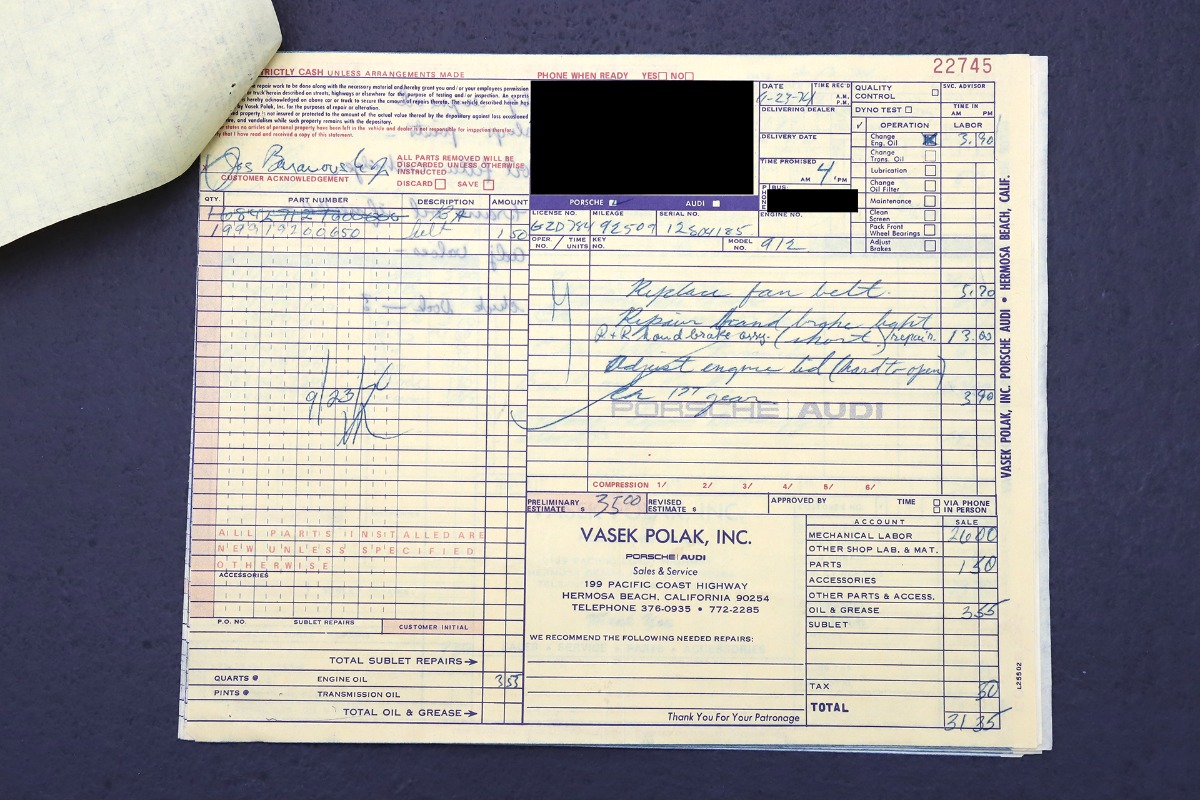 TRICTLY CASH UNLESS ARRANGEMENTS MADE
PHONE WHEN READY YES NO
22745
repair work to be done along with the necessary material and hereby grant you and/or your employees permission
truck herein described on streets, highways or elsewhere for the purpose of testing and/or inspection. An express
is hereby acknowledged on above car or truck to secure the amount of repairs thereto. The vehicle described herein has
by Vasek Polak, Inc. for the purposes of repair or alteration.
property is insured and protected to the amount of the actual value thereof by the depositary against loss occasioned
and vandalism while such property remains with the depositary.
states no articles of personal property have been left in the vehicle and dealer is not responsible for inspection therefor.
that I have read and received a copy of this statement.
CUSTOMER ACKNOWLEDGEMENT
ALL PARTS REMOVED WILL BE
DISCARDED UNLESS OTHERWISE
INSTRUCTED
DISCARD SAVE
DATE
TIME REC'D
A.M.
P.M.
DELIVERING DEALER
DELIVERY DATE
TIME PROMISED
AM 4 PM
PHONE
BUS.
QUALITY CONTROL
SVC. ADVISOR
DYNO TEST
TIME IN
AM PM
✓ OPERATION LABOR
Change Eng. Oil 3.90
Change Trans. Oil
Lubrication
Change Oil Filter
Maintenance
Clean Screen
Pack Front Wheel Bearings
Adjust Brakes
QTY. PART NUMBER DESCRIPTION AMOUNT
99919200650 belt 1 50
PORSCHE AUDI
LICENSE NO. MILEAGE SERIAL NO. ENGINE NO.
GZD784 92509 12804185
OPER. NO. TIME UNITS KEY NO. MODEL NO. 912
Replace fan belt. 5.20
Repair hand brake light
R + R hand brake assy. (short) repair. 13.00
Adjust engine lid (hard to open)
Ck 1st gear 3.90
PORSCHE AUDI
9/23/
COMPRESSION 1/ 2/ 3/ 4/ 5/ 6/
PRELIMINARY ESTIMATE $ 35 00 REVISED ESTIMATE $
APPROVED BY TIME VIA PHONE IN PERSON
ALL PARTS INSTALLED ARE
NEW UNLESS SPECIFIED
OTHERWISE
ACCESSORIES
P.O. NO. SUBLET REPAIRS CUSTOMER INITIAL
TOTAL SUBLET REPAIRS
QUARTS @ ENGINE OIL 3 55
PINTS @ TRANSMISSION OIL
TOTAL OIL & GREASE
VASEK POLAK, INC.
PORSCHE AUDI
Sales & Service
199 PACIFIC COAST HIGHWAY
HERMOSA BEACH, CALIFORNIA 90254
TELEPHONE 376-0935 • 772-2285
WE RECOMMEND THE FOLLOWING NEEDED REPAIRS:
Thank You For Your Patronage
ACCOUNT SALE
MECHANICAL LABOR 26 00
OTHER SHOP LAB. & MAT.
PARTS 1 50
ACCESSORIES
OTHER PARTS & ACCESS.
OIL & GREASE 3 55
SUBLET
TAX 30
TOTAL 31 35
VASEK POLAK, INC. PORSCHE AUDI • HERMOSA BEACH, CALIF.
L25502